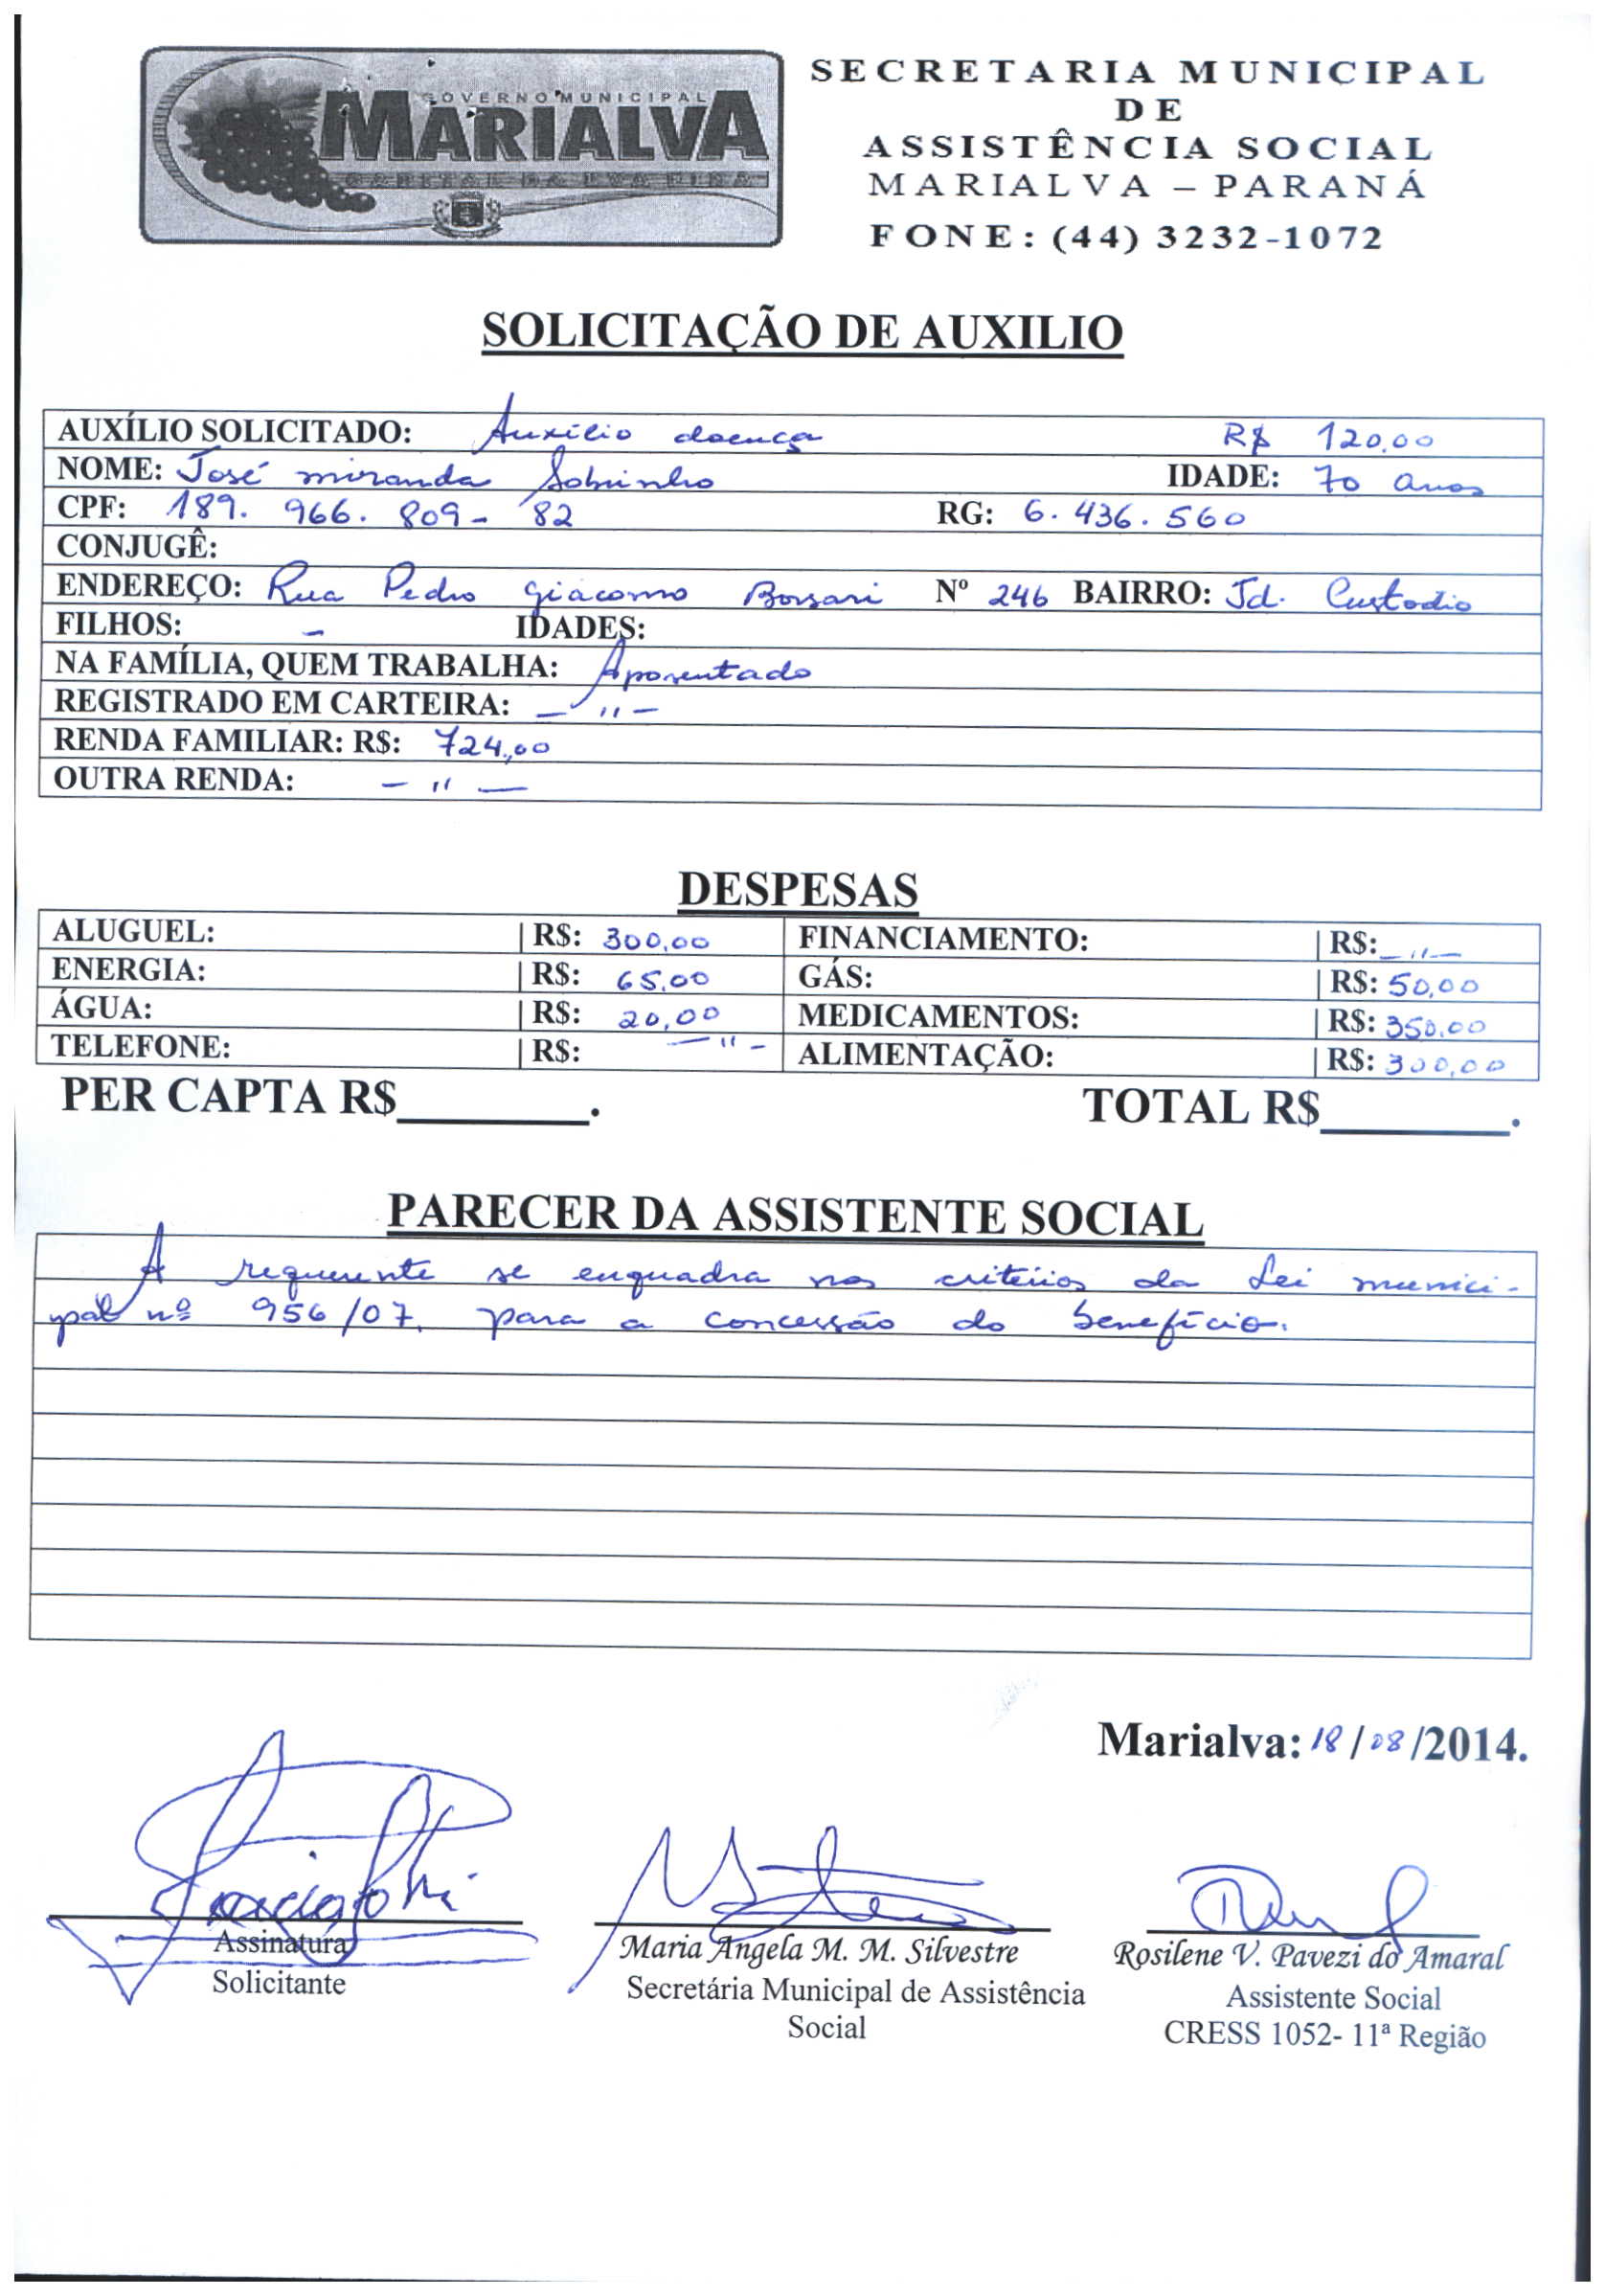 GOVERNO MUNICIPAL
MARIALVA
CAPITAL DA UVA FINA
SECRETARIA MUNICIPAL
DE
ASSISTÊNCIA SOCIAL
MARIALVA – PARANÁ
FONE: (44) 3232-1072
SOLICITAÇÃO DE AUXILIO
AUXÍLIO SOLICITADO: Auxílio doença R$ 120,00
NOME: José miranda Sobrinho IDADE: 70 anos
CPF: 189. 966. 809- 82 RG: 6. 436. 560
CONJUGÊ:
ENDEREÇO: Rua Pedro Giácomo Borsari Nº 246 BAIRRO: Jd. Custodio
FILHOS: - IDADES:
NA FAMÍLIA, QUEM TRABALHA: Aposentado
REGISTRADO EM CARTEIRA: - " -
RENDA FAMILIAR: R$: 724,00
OUTRA RENDA: - " -
DESPESAS
ALUGUEL: | R$: 300,00 FINANCIAMENTO: | R$: - " -
ENERGIA: | R$: 65,00 GÁS: | R$: 50,00
ÁGUA: | R$: 20,00 MEDICAMENTOS: | R$: 350,00
TELEFONE: | R$: - " - ALIMENTAÇÃO: | R$: 300,00
PER CAPTA R$________. TOTAL R$________.
PARECER DA ASSISTENTE SOCIAL
A requerente se enquadra nos critérios da Lei munici-
pal nº 956/07, para a concessão do benefício.
Marialva: 18/08/2014.
Assinatura
Solicitante
Maria Angela M. M. Silvestre
Secretária Municipal de Assistência
Social
Rosilene V. Pavezi do Amaral
Assistente Social
CRESS 1052- 11ª Região